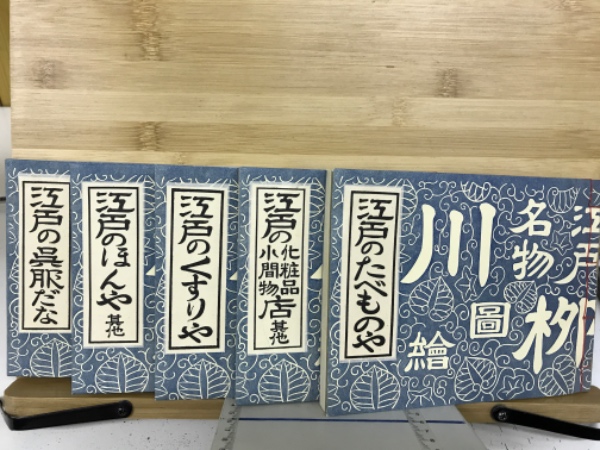 江戸の呉服だな
江戸のほんや 其他
江戸のくすりや
江戸の化粧品小間物店 其他
江戸のたべものや
江戸
名物
川柳
圖
繪